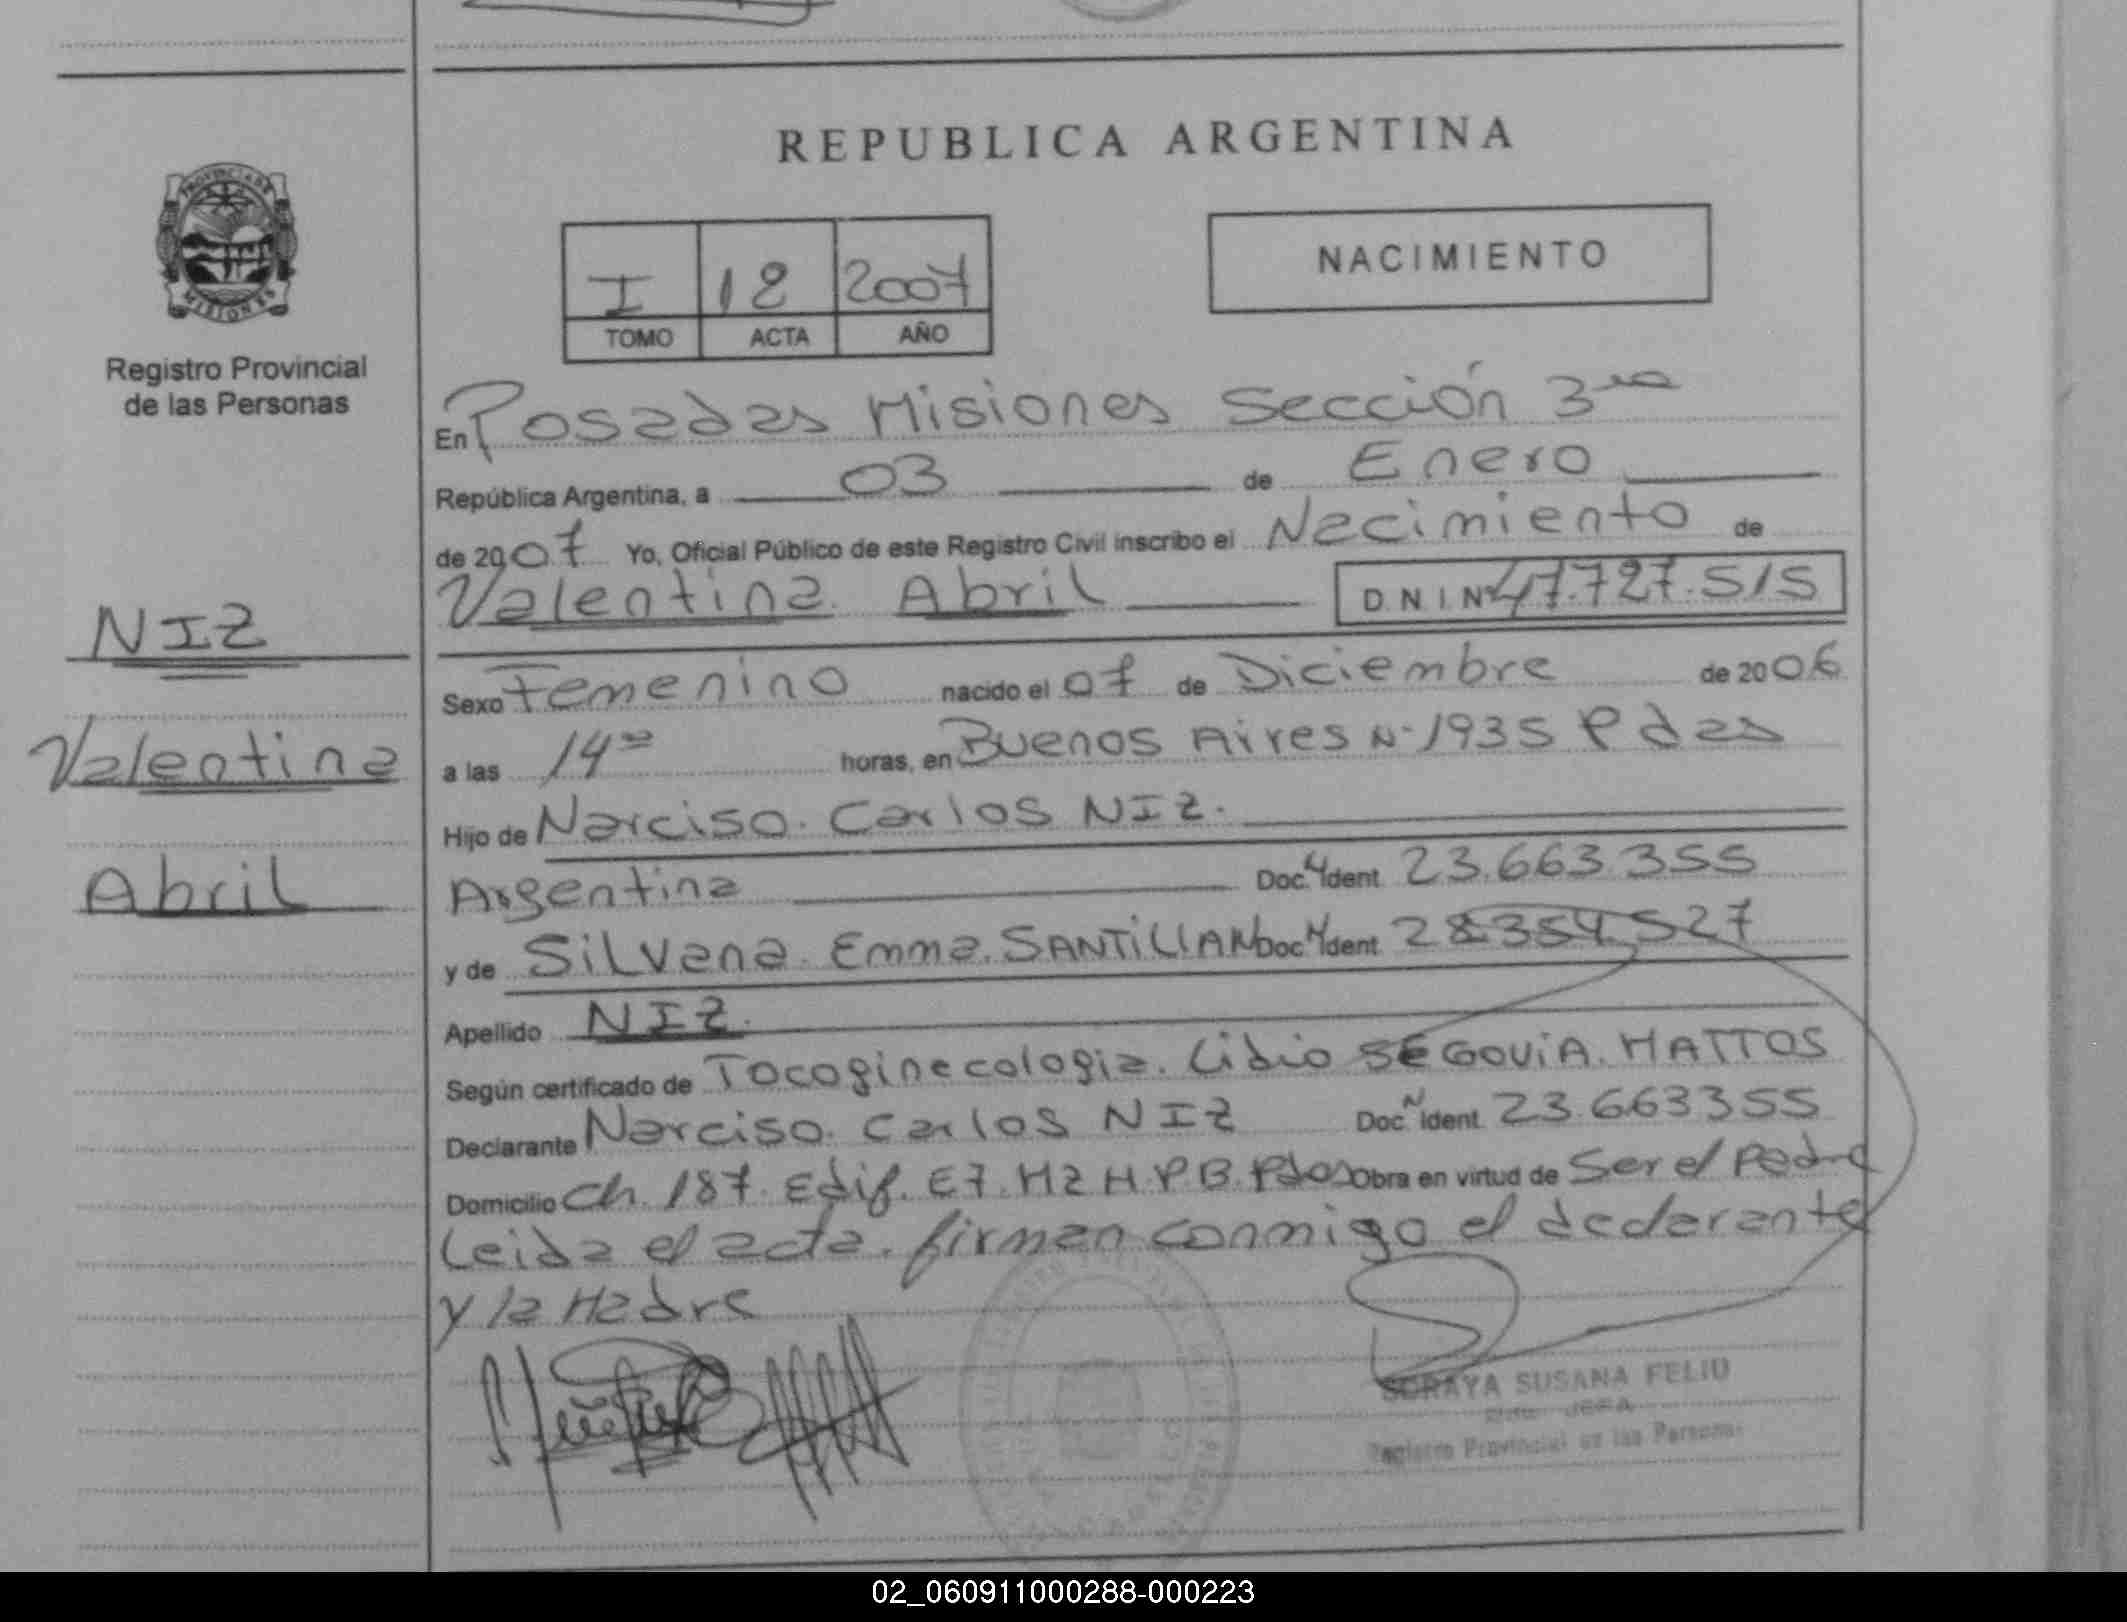 PROVINCIA DE
MISIONES
Registro Provincial
de las Personas
NIZ
Valentina
Abril
REPUBLICA ARGENTINA
I 18 2007
TOMO ACTA AÑO
NACIMIENTO
En Posadas Misiones Sección 3ra
República Argentina, a 03 de Enero
de 2007 Yo, Oficial Público de este Registro Civil inscribo el Nacimiento de
Valentina Abril D N I N 47.727.515
Sexo Femenino nacido el 07 de Diciembre de 2006
a las 14 horas, en Buenos Aires N° 1935 Pdas
Hijo de Narciso Carlos NIZ.
Argentina Doc. N Ident 23.663.355
y de Silvana Emma SANTILLAN Doc N Ident 28354527
Apellido NIZ.
Según certificado de Tocoginecologia. Lidio SEGOVIA. MATTOS
Declarante Narciso Carlos NIZ Doc N Ident 23.663355
Domicilio Ch. 187. Edif. E7. Mz H. PB. Pdas Obra en virtud de Ser el Padre
Leida el acta. firman conmigo el declarante
y la Madre
SORAYA SUSANA FELIU
JEFA
Registro Provincial de las Personas
02_060911000288-000223